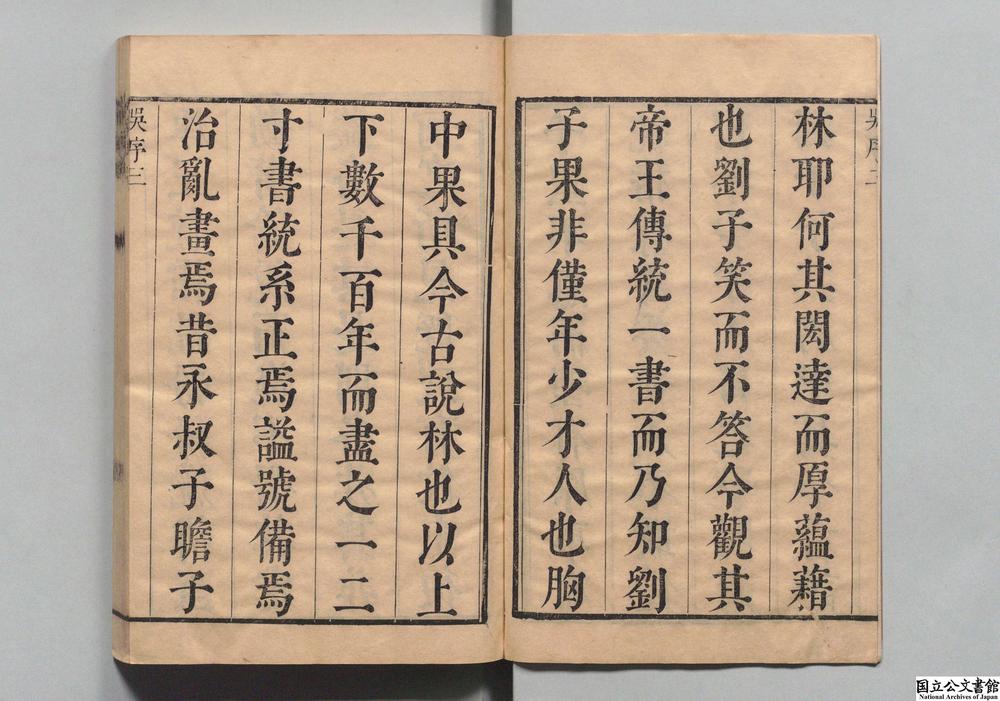 吳序二
林耶何其閎達而厚蘊藉
也劉子笑而不答今觀其
帝王傳統一書而乃知劉
子果非僅年少才人也胸
中果具今古說林也以上
下數千百年而盡之一二
寸書統系正焉謚號備焉
治亂畫焉昔永叔子瞻子
吳序三
国立公文書館
National Archives of Japan